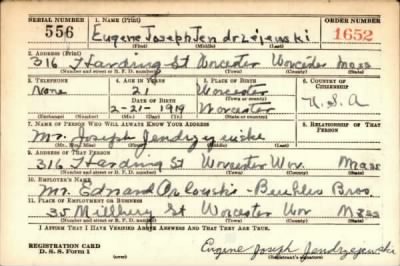 SERIAL NUMBER 1. NAME (Print) ORDER NUMBER
556 Eugene Joseph Jendrzejewski 1652
(First) (Middle) (Last)
2. ADDRESS (Print)
316 Harding St Worcester Worcester Mass
(Number and street or R. F. D. number) (Town) (County) (State)
3. TELEPHONE 4. AGE IN YEARS 5. PLACE OF BIRTH 6. COUNTRY OF CITIZENSHIP
None 21 Worcester
DATE OF BIRTH (Town or county) U.S.A
2-21-1919 Worcester
(Exchange) (Number) (Mo.) (Day) (Yr.) (State or country)
7. NAME OF PERSON WHO WILL ALWAYS KNOW YOUR ADDRESS 8. RELATIONSHIP OF THAT PERSON
Mr. Joseph Jendrzejewski
(Mr., Mrs., Miss) (First) (Middle) (Last)
9. ADDRESS OF THAT PERSON
316 Harding St Worcester Wor. Mass
(Number and street or R. F. D. number) (Town) (County) (State)
10. EMPLOYER'S NAME
Mr. Edward Bros.
11. PLACE OF EMPLOYMENT OR BUSINESS
35 Millbury St Worcester Wor Mass
(Number and street or R. F. D. number) (Town) (County) (State)
I AFFIRM THAT I HAVE VERIFIED ABOVE ANSWERS AND THAT THEY ARE TRUE.
REGISTRATION CARD
D. S. S. Form 1 Eugene Joseph Jendrzejewski
(Registrant's signature)